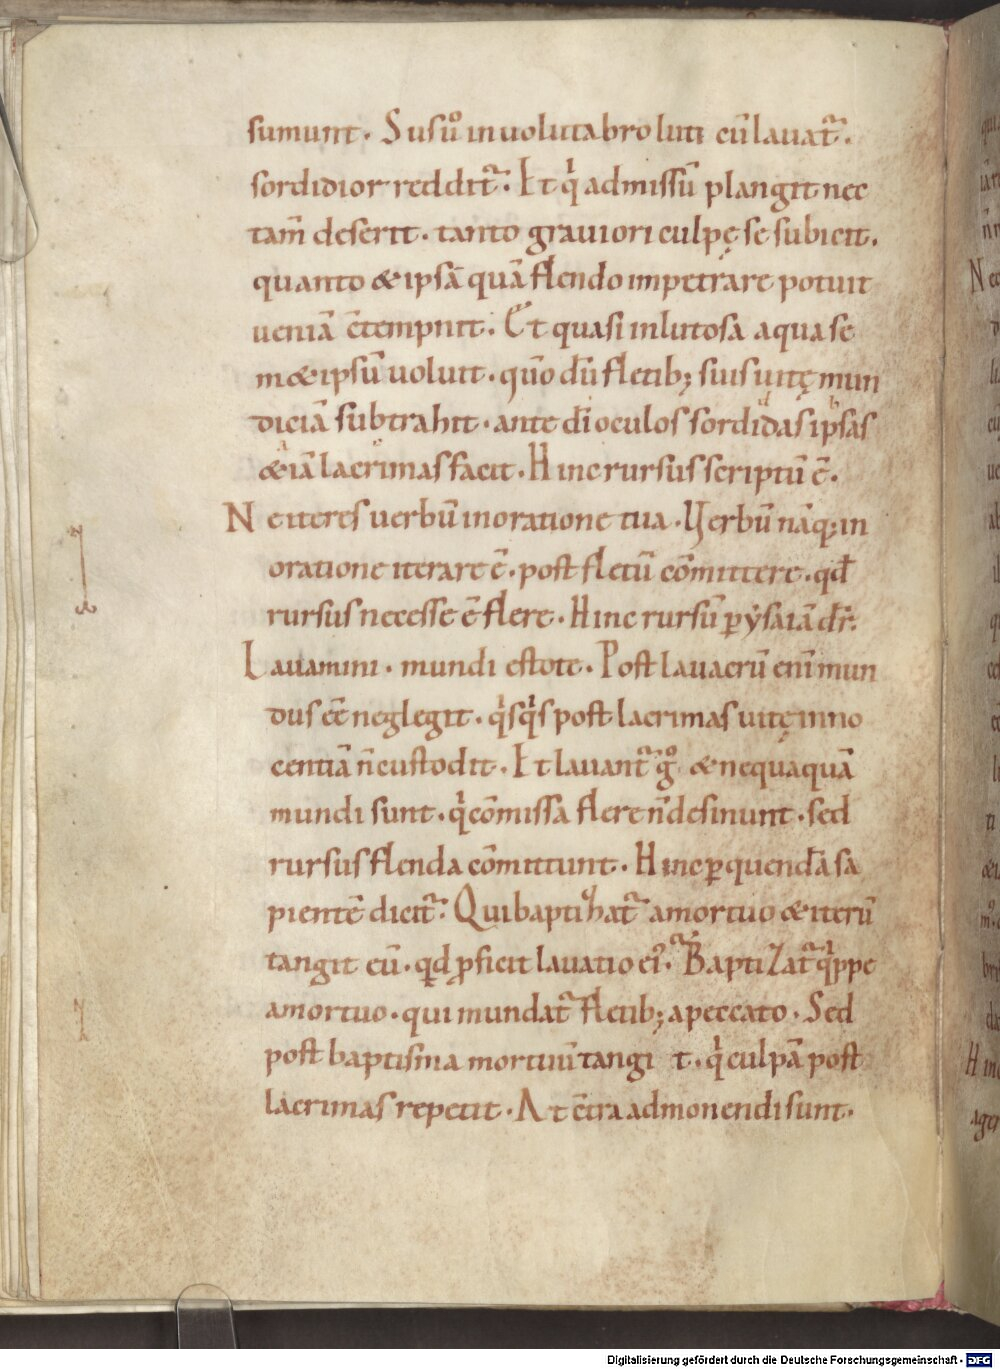 sumunt. Sus uͦ in uolutabro luti cū lauat᷑.
sordidior reddit᷑. Et qͥ admissū plangit nec
tam̄ deserit. tanto grauiori culpę se subicit.
quanto & ipsā quā flendo impetrare potuit
ueniā c̄tempnit. Et quasi in lutosa aqua se
m& ipsū uoluit. qm̄o dū fletib; suis uitę mun
diciā subtrahit. ante dī oculos sordidas ipsas
& iā lacrimas facit. Hinc rursus scriptū ē.
Ne iteres uerbū in oratione tua. Uerbū nāq; in
oratione iterare ē. post fletū cōmittere. qd̄
rursus necesse ē flere. Hinc rursū ꝑ ysaiā dr̄.
Lauamini. mundi estote. Post lauacrū enī mun
dus eē neglegit. qͥsqͥs post lacrimas uitę inno
centiā n̄ custodit. Et lauant᷑ gͦ & nequaquā
mundi sunt. qͥ cōmissa flere n̄ desinunt. sed
rursus flenda cōmittunt. Hinc ꝑ quendā sa
pientē dicit᷑. Qui baptizat᷑ a mortuo & iterū
tangit eū. qd ꝓficit lauatio eiꝰ. Baptizat᷑ qͥppe
a mortuo. qui mundat᷑ fletib; a peccato. Sed
post baptisma mortuū tangit. qͥ culpā post
lacrimas repetit. At c̄tra admonendi sunt.
Digitalisierung gefördert durch die Deutsche Forschungsgemeinschaft - DFG